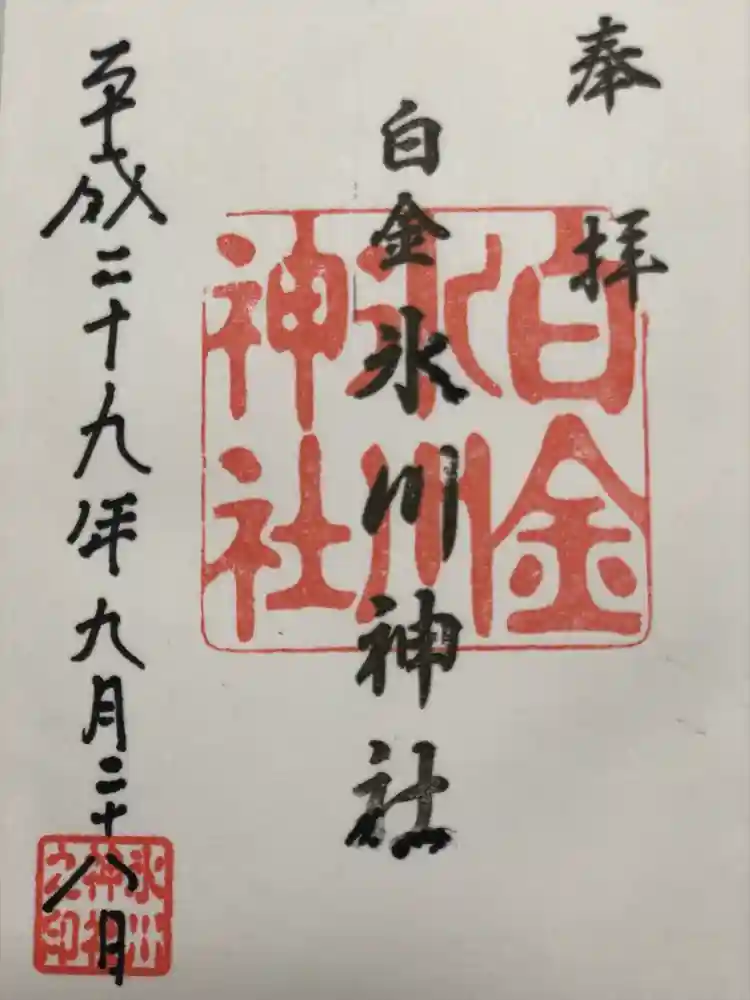 奉拝
白金氷川神社
白金
氷川
神社
平成二十九年九月二十八日
氷川
神社
之印